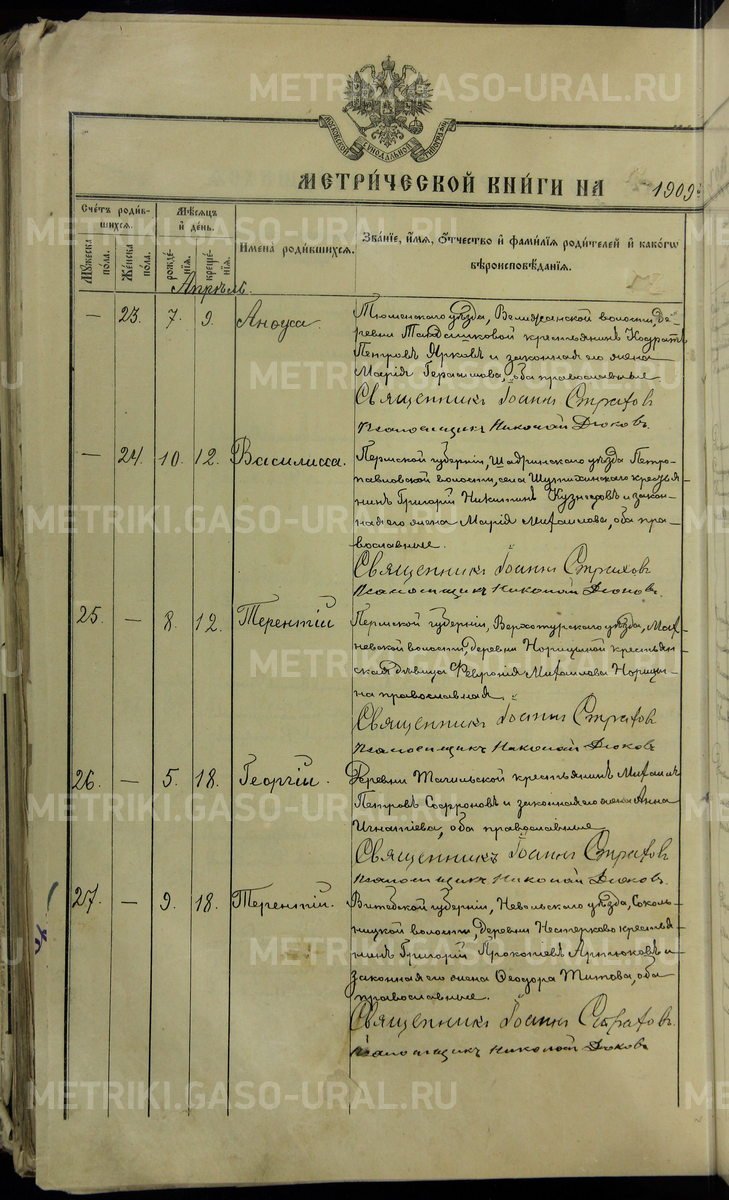 METRIKI.GASO-URAL.RU
МОСКОВСКОЙ СѴНОДАЛЬНОЙ ТИПОГРАФІИ
МЕТРИ́ЧЕСКОЙ КНИ́ГИ НА 1909
Сче́тъ роди́вшихся.
Мѣ́сяцъ и҆ день.
Имена̀ роди́вшихся.
Зва́нїе, и҆́мя, ѻ҆́тчество и҆ фами́лїя роди́телей и҆ како́гѡ вѣроисповѣ́данїя.
Мꙋ́жеска по́ла.
Же́нска по́ла.
рожде́нїя.
креще́нїя.
Апрѣль.
— 23. 7. 9. Анѳуса.
Тюменскаго уѣзда, Велижанской волости, де-
ревни Тандашковой крестьянинъ Кодратъ
Петровъ Ярковъ и законная его жена
Марія Герасимова, оба православные
Священникъ Іоаннъ Страховъ
Псаломщикъ Николай Дюковъ.
— 24. 10. 12. Василисса.
Пермской губерніи, Шадринскаго уѣзда Петро-
павловской волости, села Шутихинскаго крестья-
нинъ Григорій Никитинъ Кузнецовъ и закон-
ная его жена Марія Михаилова, оба пра-
вославные.
Священникъ Іоаннъ Страховъ
Псаломщикъ Николай Дюковъ.
25. — 8. 12. Терентій
Пермской губерніи, Верхотурскаго уѣзда, Мах-
невской волости, деревни Норицыной крестьян-
ская дѣвица Февронія Михаилова Норицы-
на православная
Священникъ Іоаннъ Страховъ
Псаломщикъ Николай Дюковъ
26. — 5. 18. Георгій.
Деревни Тагильской крестьянинъ Михаилъ
Петровъ Софроновъ и законная его жена Анна
Игнатіева, оба православные
Священникъ Іоаннъ Страховъ
Псаломщикъ Николай Дюковъ.
27. — 9. 18. Терентій.
Витебской губерніи, Невельскаго уѣзда, Соколь-
ницкой волости, деревни Нестерково крестья-
нинъ Григорій Прокопіевъ Артюховъ и
законная его жена Ѳеодора Титова, оба
православные.
Священникъ Іоаннъ Страховъ.
Псаломщикъ Николай Дюковъ